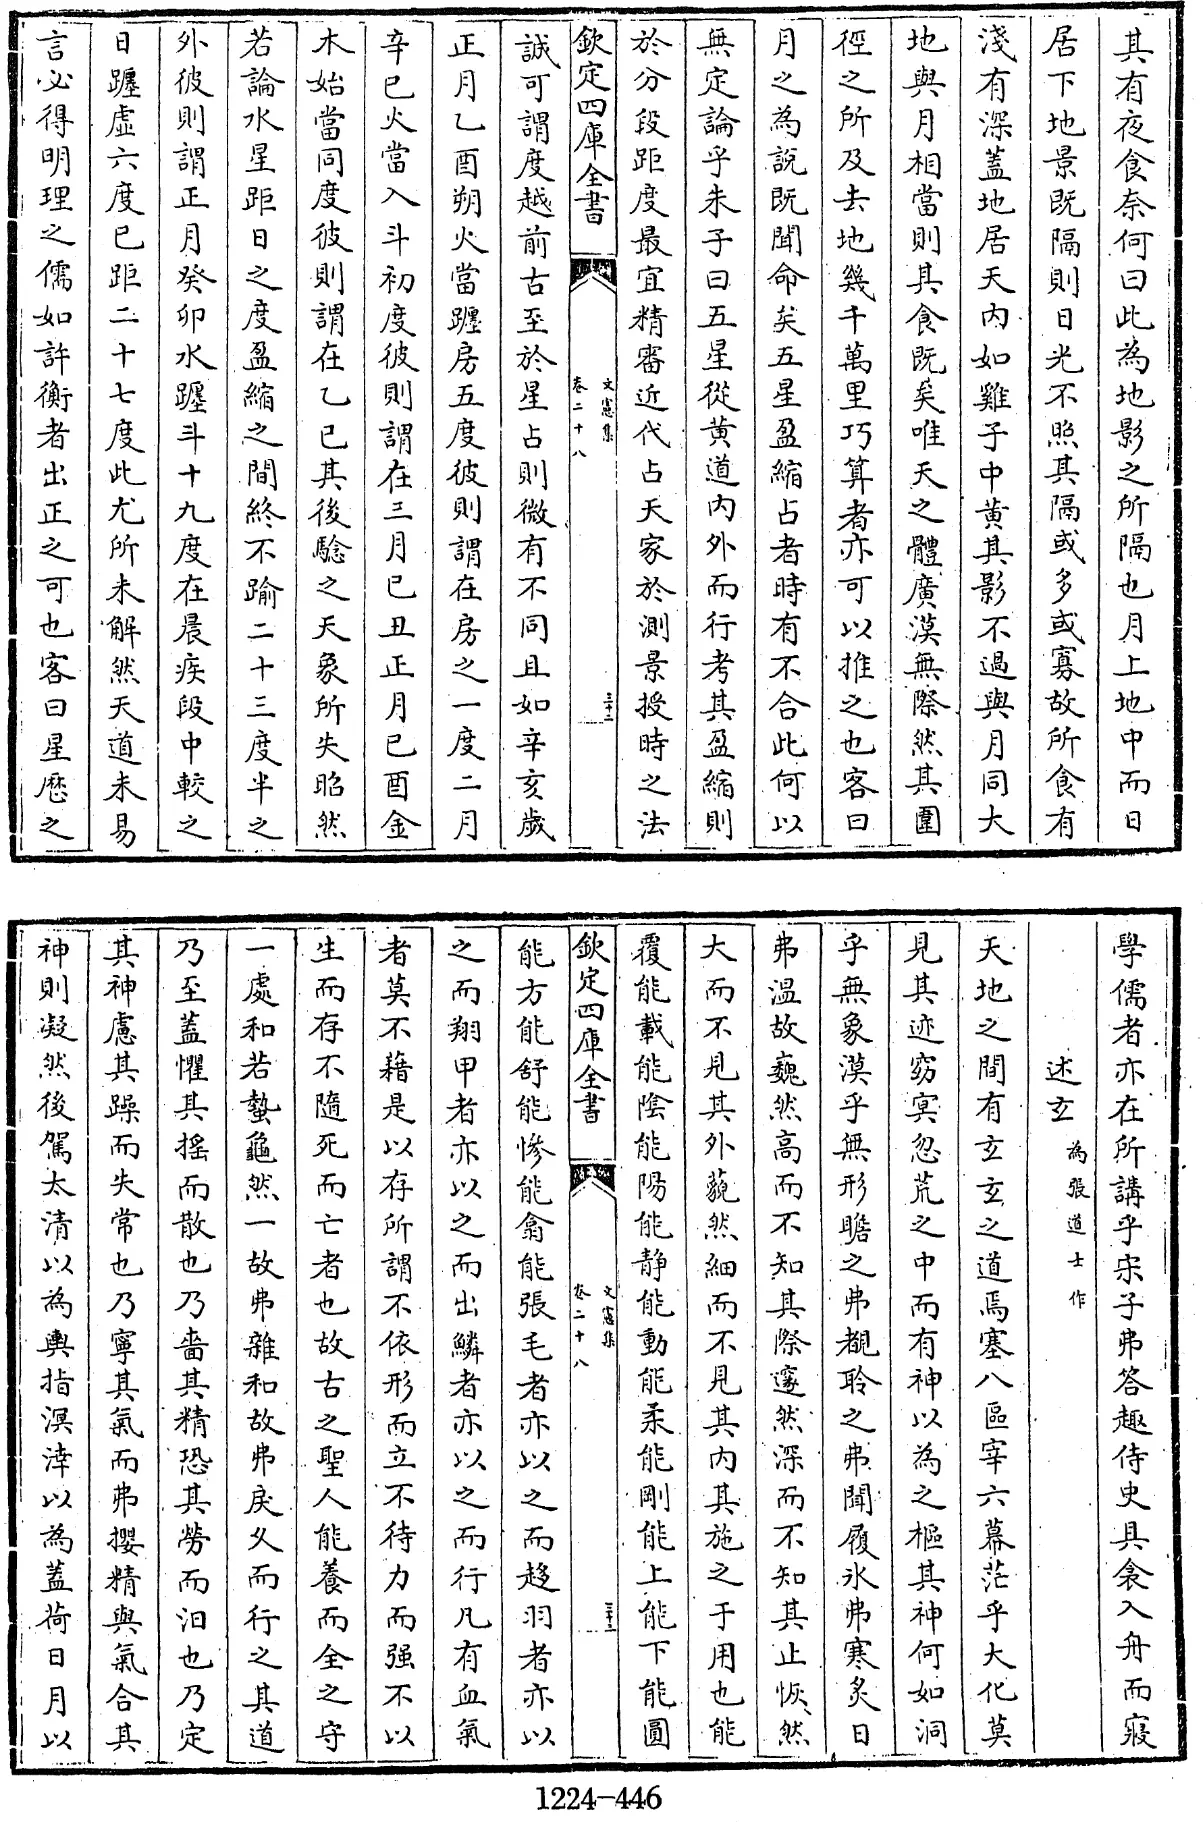 其有夜食奈何曰此為地影之所隔也月上地中而日
居下地景既隔則日光不照其隔或多或寡故所食有
淺有深蓋地居天內如雞子中黃其影不過與月同大
地與月相當則其食既矣唯天之體廣漠無際然其圍
徑之所及去地幾千萬里巧算者亦可以推之也客曰
月之為說既聞命矣五星盈縮占者時有不合此何以
無定論乎朱子曰五星從黃道內外而行考其盈縮則
於分段距度最宜精審近代占天家於測景授時之法
欽定四庫全書
文憲集
卷二十八
三十三
誠可謂度越前古至於星占則微有不同且如辛亥歲
正月乙酉朔火當躔房五度彼則謂在房之一度二月
辛巳火當入斗初度彼則謂在三月己丑正月己酉金
木始當同度彼則謂在乙巳其後驗之天象所失昭然
若論水星距日之度盈縮之間終不踰二十三度半之
外彼則謂正月癸卯水躔斗十九度在晨疾段中較之
日躔虛六度已距二十七度此尤所未解然天道未易
言必得明理之儒如許衡者出正之可也客曰星歷之
學儒者亦在所講乎宋子弗答趣侍史具衾入舟而寢
述玄 為張道士作
天地之間有玄玄之道焉塞八區宰六幕茫乎大化莫
見其迹窈冥忽荒之中而有神以為之樞其神何如洞
乎無象漠乎無形瞻之弗覩聆之弗聞履氷弗寒炙日
弗溫故巍然高而不知其際邃然深而不知其止恢然
大而不見其外藐然細而不見其內其施之于用也能
覆能載能陰能陽能靜能動能柔能剛能上能下能圓
欽定四庫全書
文憲集
卷二十八
三十三
能方能舒能慘能翕能張毛者亦以之而趍羽者亦以
之而翔甲者亦以之而出鱗者亦以之而行凡有血氣
者莫不藉是以存所謂不依形而立不待力而强不以
生而存不隨死而亡者也故古之聖人能養而全之守
一處和若蟄龜然一故弗雜和故弗戾久而行之其道
乃至蓋懼其揺而散也乃嗇其精恐其勞而汩也乃定
其神慮其躁而失常也乃寧其氣而弗攖精與氣合其
神則凝然後駕太清以為輿指溟涬以為蓋荷日月以
1224-446